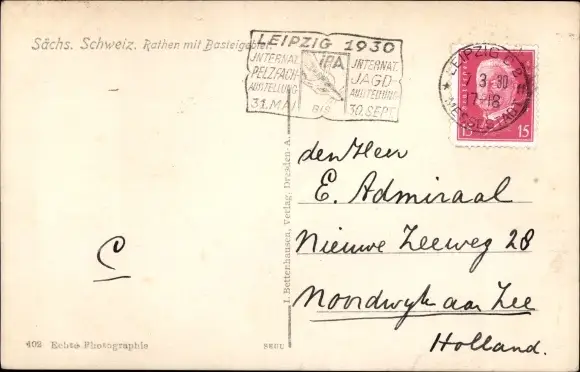 Sächs. Schweiz. Rathen mit Basteigebiet.
LEIPZIG 1930
INTERNAT.
PELZFACH-
AUSSTELLUNG
31. MAI
IPA
BIS
INTERNAT.
JAGD-
AUSSTELLUNG
30. SEPT.
LEIPZIG C 2
3 30
7-18
MESSESTADT
15 15
den Heer
E. Admiraal
Nieuwe Zeeweg 28
Noordwijk aan Zee
Holland.
C
J. Bettenhausen, Verlag, Dresden-A.
402 Echte Photographie